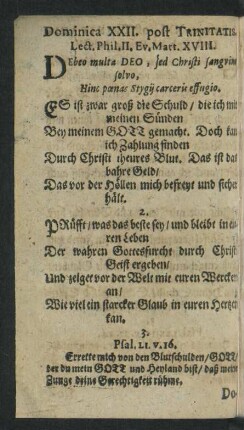 Dominica XXII. post TRINITATIS.
Lect. Phil. II, Ev, Matt. XVIII.
DEbeo multa DEO, sed Christi sangvine
solvo,
Hinc pœnæ Stygij carceris effugio.
ES ist zwar groß die Schuld/ die ich mit
meinen Sünden
Bey meinem GOTT gemacht. Doch kan
ich Zahlung finden
Durch Christi theures Blut. Das ist das
bahre Geld/
Das vor der Höllen mich befreyt und sicher
hält.
2.
PRüfft/ was das beste sey/ und bleibt in
euren Leben
Der wahren Gottesfurcht durch Christi
Geist ergeben/
Und zeiget vor der Welt mit euren Wercken
an/
Wie viel ein starcker Glaub in euren Hertzen
kan.
3.
Psal. LI. v. 16.
Errette mich von den Blutschulden/ GOTT/
der du mein GOTT und Heyland bist/ daß meine
Zunge deine Gerechtigkeit rühme.
Do-